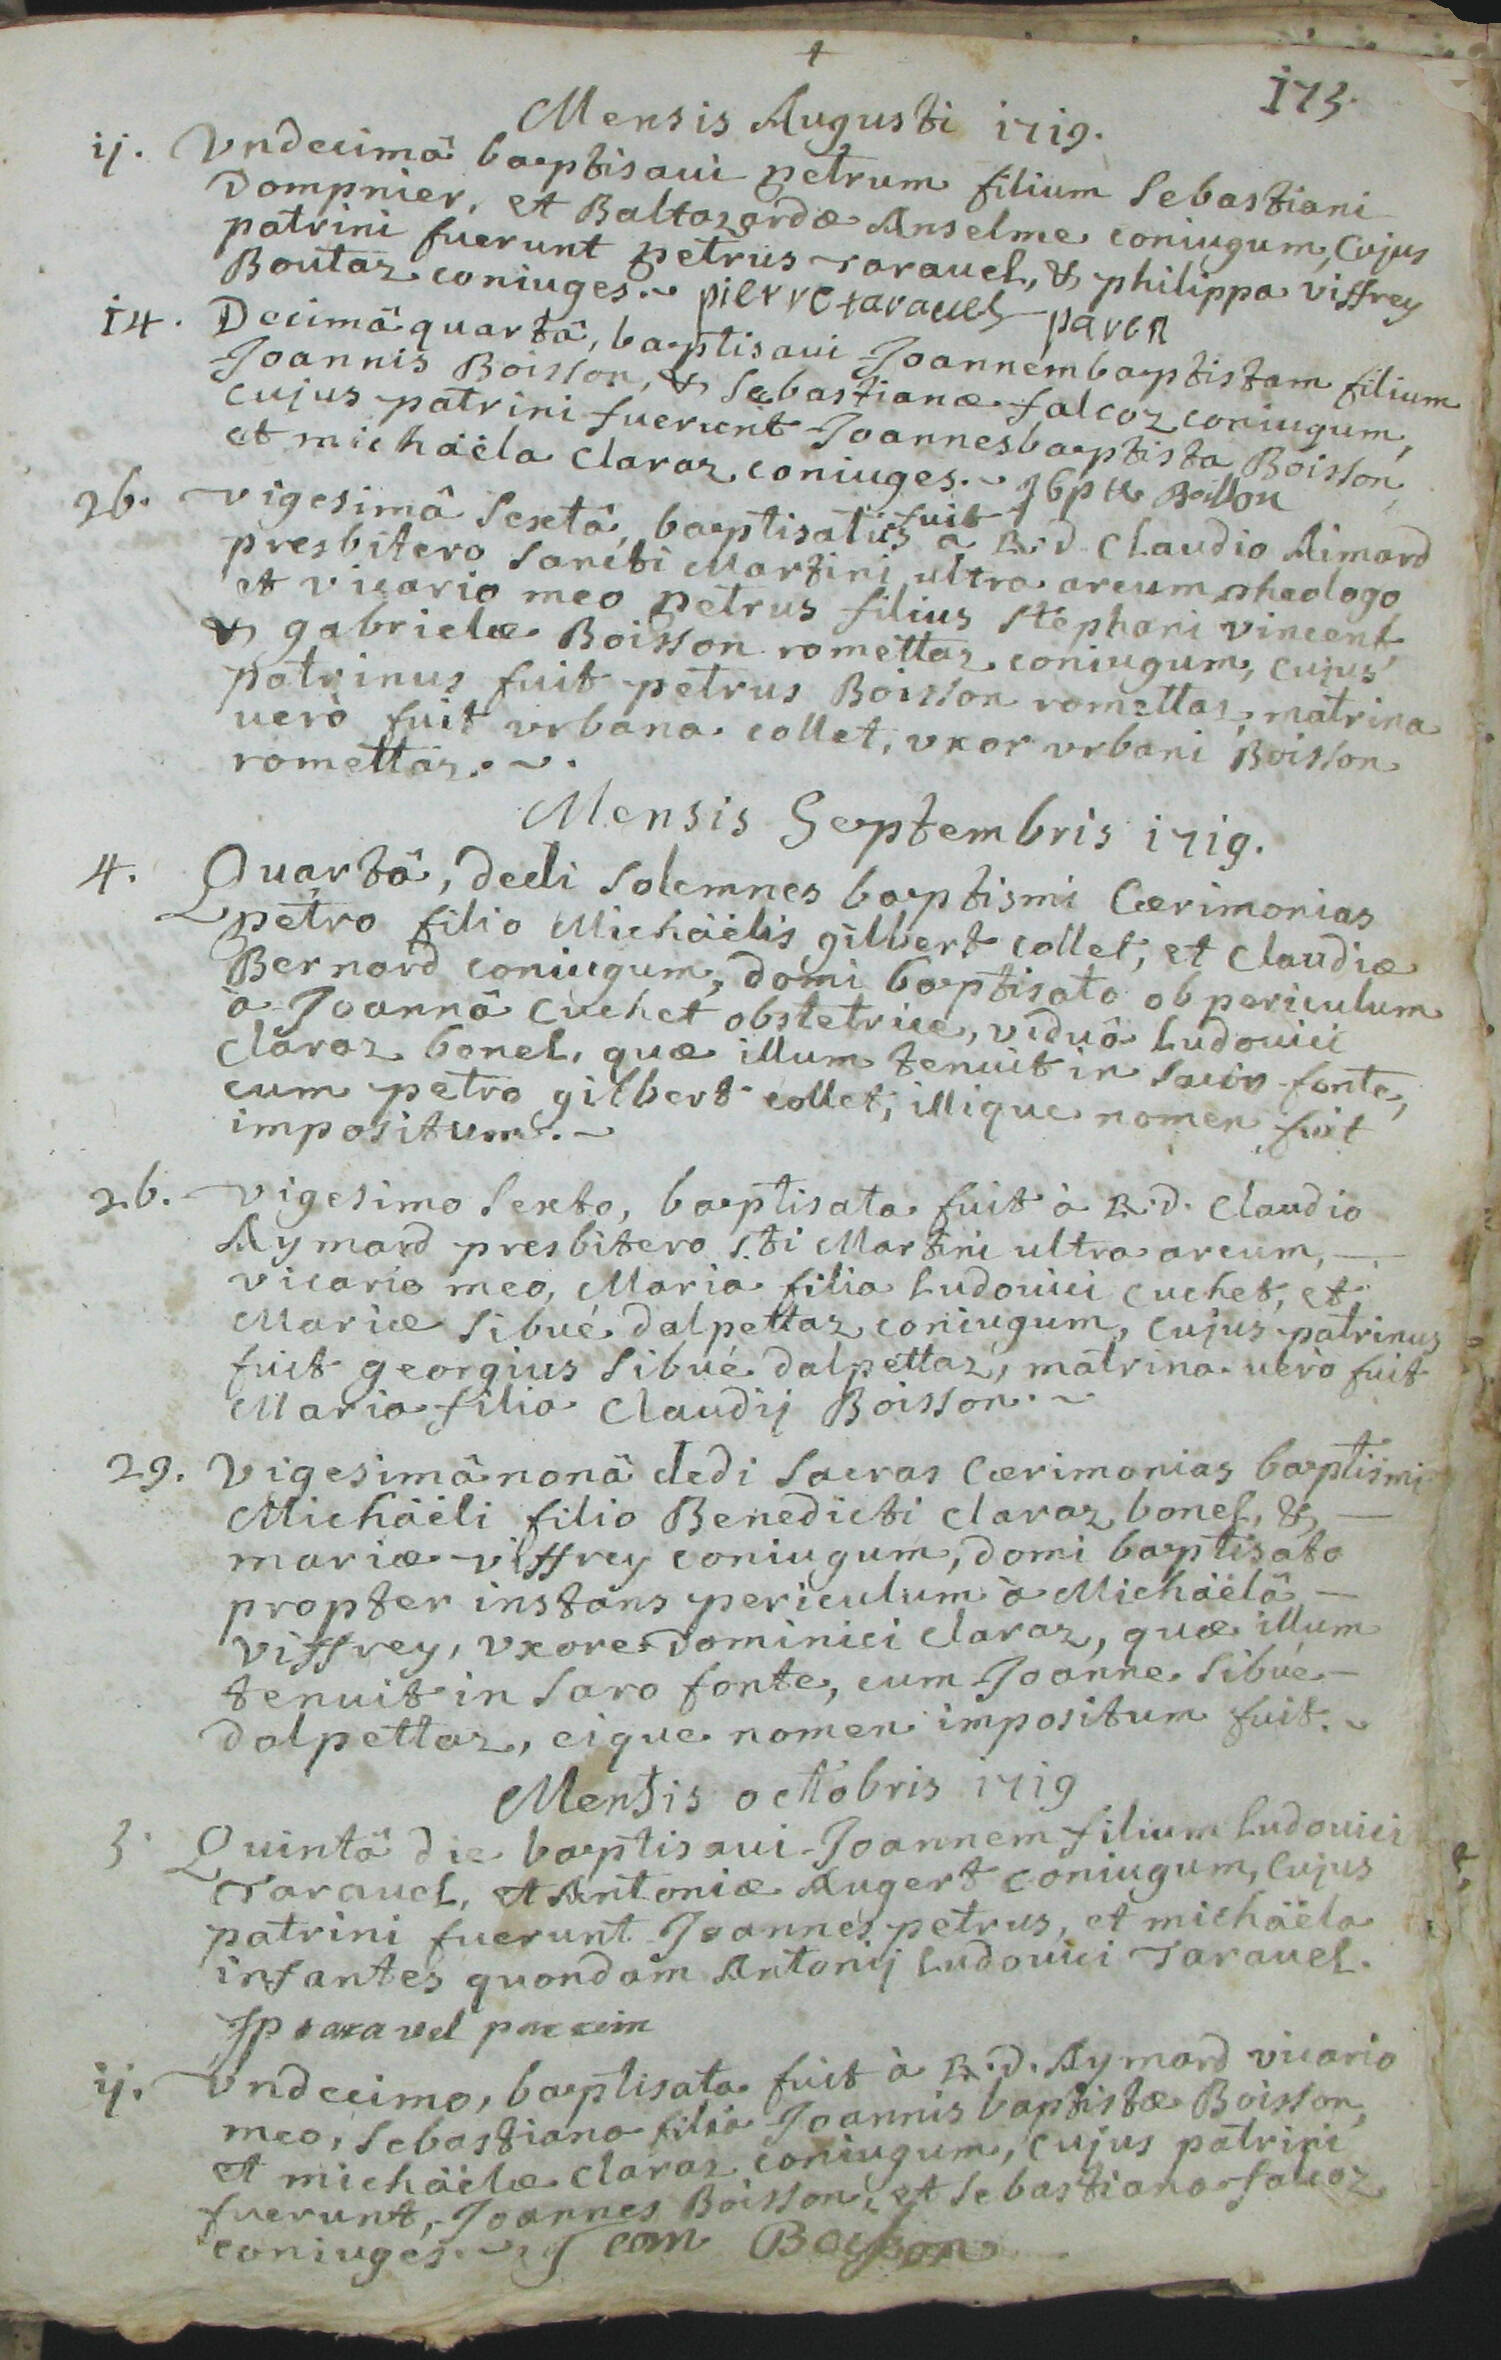 +
173.
Mensis Augusti 1719.
ij. Vndecimâ baptisaui petrum filium Sebastiani
Dompnier, et Baltazardæ Anselme coniugum, Cujus
patrini fuerunt petrus rarauel, & philippa viffrey
Boutaz coniuges.~ pierre taravel paren
14. Decimâ quartâ, baptisaui Joannembaptistam filium
Joannis Boisson, & Sebastianæ falcoz coniugum,
cujus patrini fuerunt Joannesbaptista Boisson,
et michäela Claraz coniuges.~ Jbpte Boisson
26. vigesimâ Sextâ, baptisatus fuit a R.d Claudio Aimard
presbitero Sancti Martini ultra arcum, theologo
et vicario meo petrus filius Stephani vincent
& gabrielæ Boisson romettaz coniugum, cujus
patrinus fuit petrus Boisson romettaz, matrina
uerò fuit vrbana collet, vxor vrbani Boisson
romettaz.~.
Mensis Septembris 1719.
4. Quartâ, dedi Solemnes baptismi Cærimonias
petro filio Michäelis gilbert collet, et Claudiæ
Bernard coniugum, domi baptisato ob periculum
à Joannâ Cuchet obstetrice, viduâ Ludouici
Claraz bonel, quæ illum tenuit in Sacro fonte,
cum petro gilbert collet, illique nomen fuit
impositum.~
26. vigesimo Sexto, baptisata fuit à R.d. Claudio
Aymard presbitero S.ti Martini ultra arcum,
vicario meo, Maria filia Ludouici Cuchet, et
Mariæ Sibué dalpettaz coniugum, cujus patrinus
fuit georgius Sibué dalpettaz, matrina uerò fuit
Maria filia Claudij Boisson.~
29. Vigesimâ nonâ dedi Sacras Cærimonias baptismi
Michäeli filio Benedicti Claraz bonel, &
mariæ viffrey coniugum, domi baptisato
propter instans periculum à Michäelâ
viffrey, vxore dominici Claraz, quæ illum
tenuit in Saro fonte, cum Joanne Sibué
dalpettaz, eique nomen impositum fuit.~
Mensis octobris 1719
5. Quintâ die baptisaui Joannem filium Ludouici
Tarauel, et Antoniæ Augert Coniugum, Cujus
patrini fuerunt Joannes petrus, et michäela
infantes quondam Antonij Ludouici Tarauel.
Jp taravel parrein
ij. Vndecimo, baptisata fuit à R.d. Aymard vicario
meo, Sebastiana filia Joannis baptistæ Boisson,
et michäelæ Claraz coniugum, cujus patrini
fuerunt, Joannes Boisson, et Sebastiana falcoz
coniuges.~ Jean Boisson